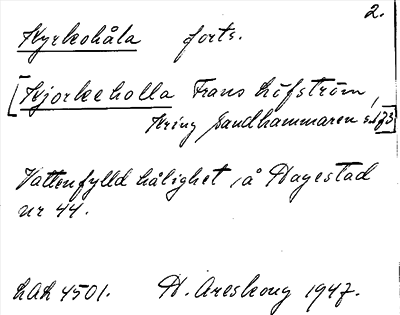 2.
Kyrkohåla forts.
[Kjorkeholla Frans Löfström,
Kring Sandhammaren s. 73]
Vattenfylld hålighet, å Hagestad
nr 44.
LAL 4501. H. Areskoug 1947.